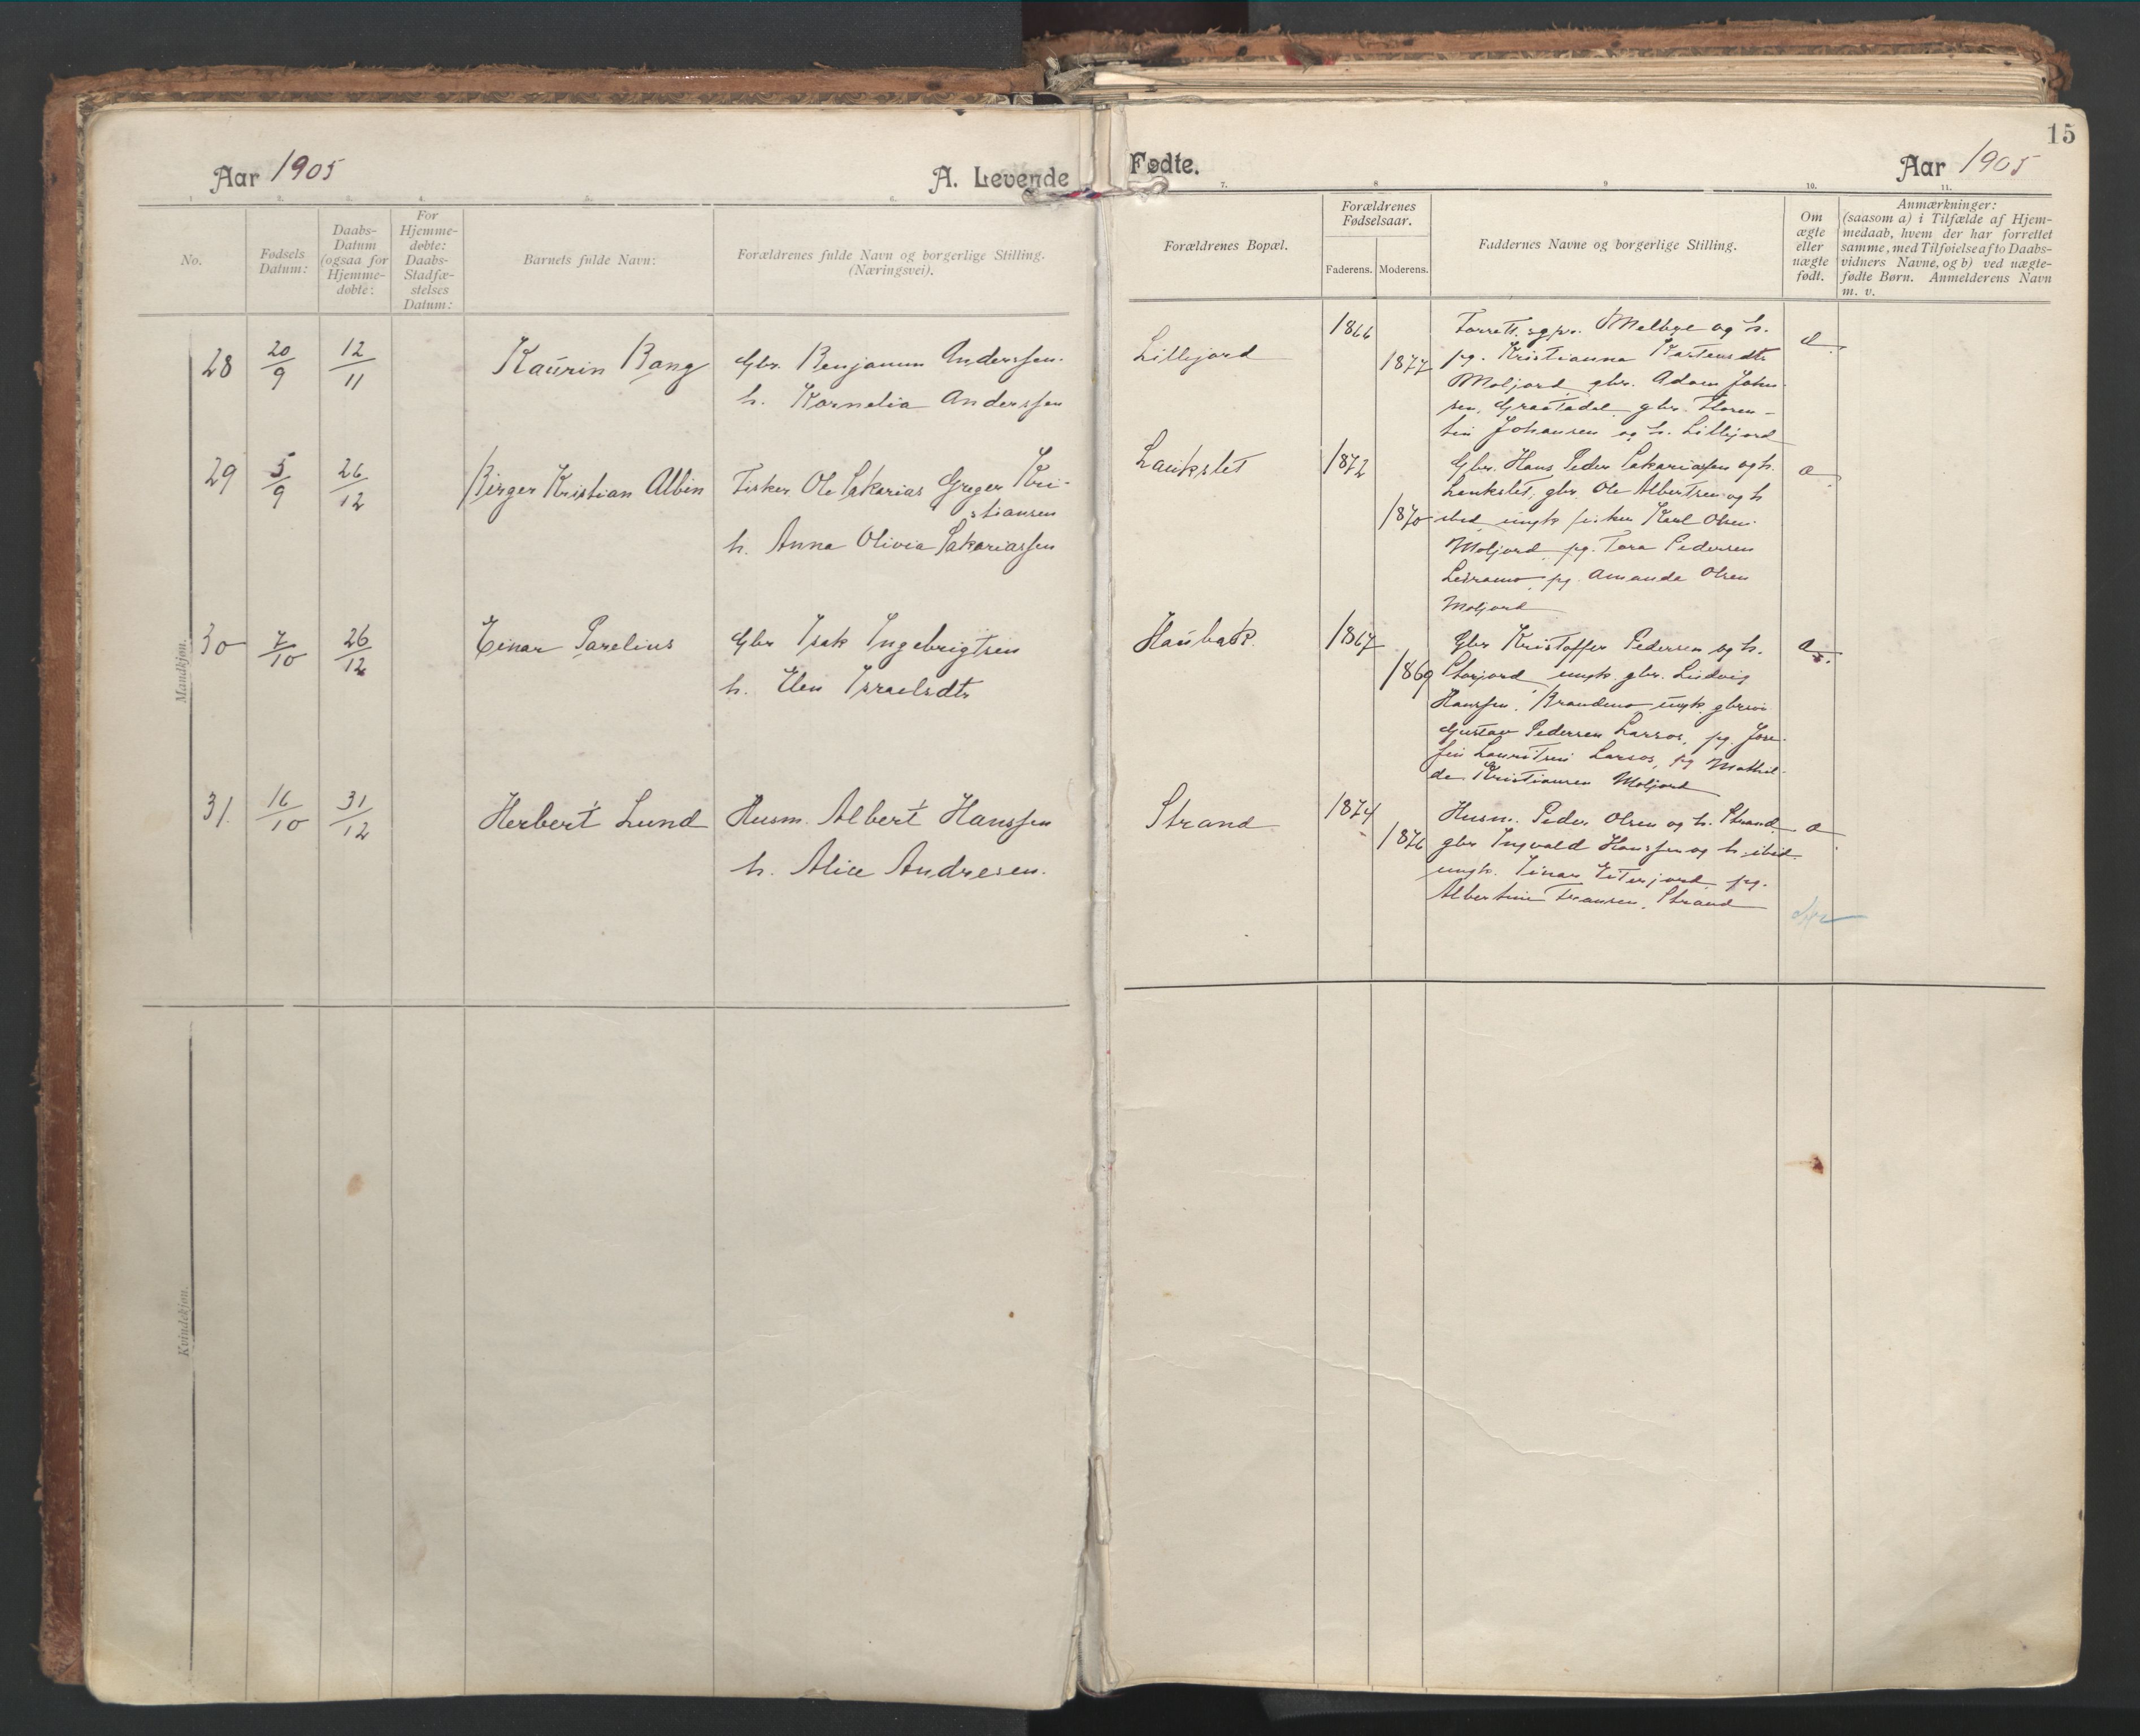 15
Aar 1905
A. Levende
Fødte.
Aar 1905
1. 2. 3. 4. 5. 6.
7. 8 9 10. 11.
No.
Fødsels Datum:
Daabs-
Datum
(ogsaa for
Hjemme-
døbte:
For
Hjemme-
døbte:
Daabs-
Stadfæ-
stelses
Datum:
Barnets fulde Navn:
Forældrenes fulde Navn og borgerlige Stilling.
(Næringsvei).
Forældrenes Bopæl.
Forældrenes
Fødselsaar.
Faderens. Moderens.
Faddernes Navne og borgerlige Stilling.
Om
ægte
eller
uægte
født.
Anmærkninger:
(saasom a) i Tilfælde af Hjem-
medaab, hvem der har forrettet
samme, med Tilføielse af to Daabs-
vidners Navne, og b) ved uægte-
fødte Børn. Anmelderens Navn
m. v.
Mandkjøn.
28 20/9 12/11 Kaurin Bang
Gbr. Benjamin Anderssen.
h. Kornelia Anderssen
Lillejord 1866
1877
sgpr. Melbye og h.
pg. Kristianna Karstensdtr
Moljord gbr. Adam Johan-
sen, Graatadal gbr. Floren-
tin Johansen og h. Lillejord
29 5/9 26/12 Birger Kristian Albin
Fisker Ole Sakarias Greger Kri-
stiansen
h. Anna Olivia Sakariassen
Laukslet 1872
1870
Gbr. Hans Peder Sakariassen og h.
Laukslet, gbr. Ole Albertsen og h
ibid, ungk fisker Karl Olsen
Moljord pg. Tora Pedersen
Leiramo, pg. Amanda Olsen
Moljord
30 7/10 26/12 Einar Parelius
Gbr Isak Ingebrigtsen
h. Elen Israelsdtr
Haubakk 1867
1869
Gbr Kristoffer Pedersen og h.
Storjord ungk. gbr. Ludvig
Hanssen, Brandmo ungk.
Gustav Pedersen Larsos, pg. Jose-
fin Lauritsen Larsos, pg Mathil-
de Kristiansen Moljord
31. 16/10 31/12 Herbert Lund
Husm. Albert Hanssen
h. Alice Andresen.
Strand 1874
1876
Husm. Peder Olsen og h. Strand
gbr Ingvald Hanssen og h. ibid.
ungk. Einar Eiterjord pg.
Albertine Fransen, Strand
Kvindekjøn.